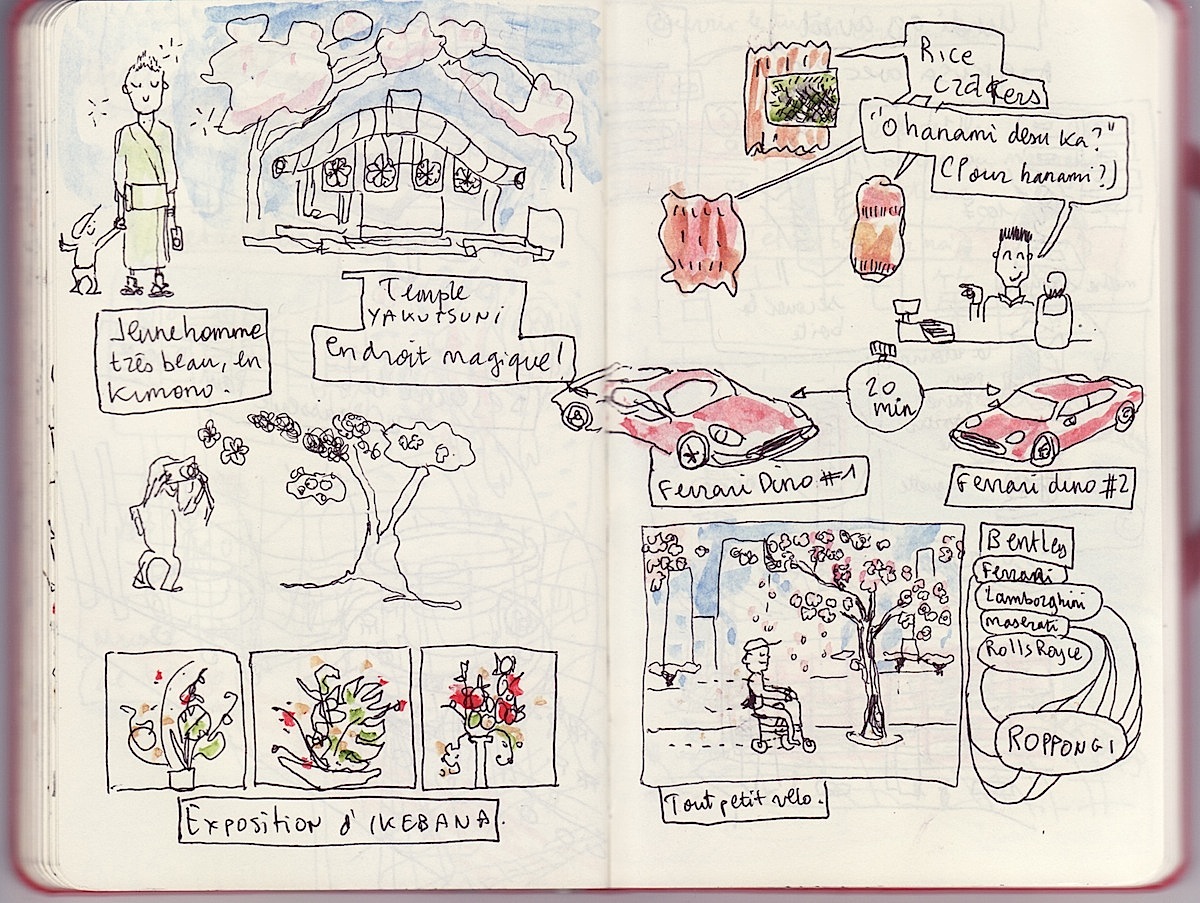 Jeune homme
très beau, en
kimono.
Temple
YAKUTSUNI
endroit magique!
EXPOSITION d'IKEBANA.
Rice
crackers
"O hanami desu ka?"
(Pour hanami?)
20
min
Ferrari Dino #1
Ferrari dino #2
Bentley
Ferrari
Lamborghini
maserati
Rolls Royce
ROPPONGI
Tout petit vélo.